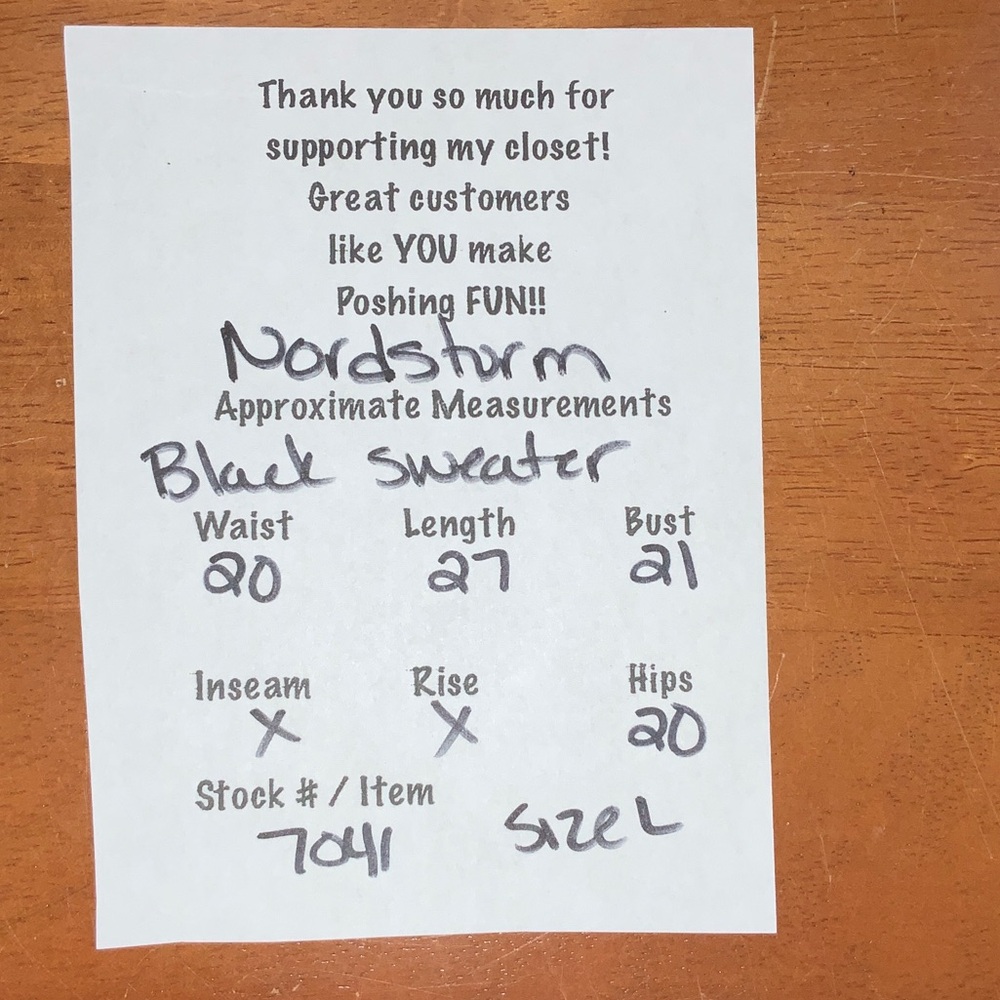 Thank you so much for
supporting my closet!
Great customers
like YOU make
Poshing FUN!!
Nordsturm
Approximate Measurements
Black Sweater
Waist Length Bust
20 27 21
Inseam Rise Hips
X X 20
Stock # / Item
7041 Size L